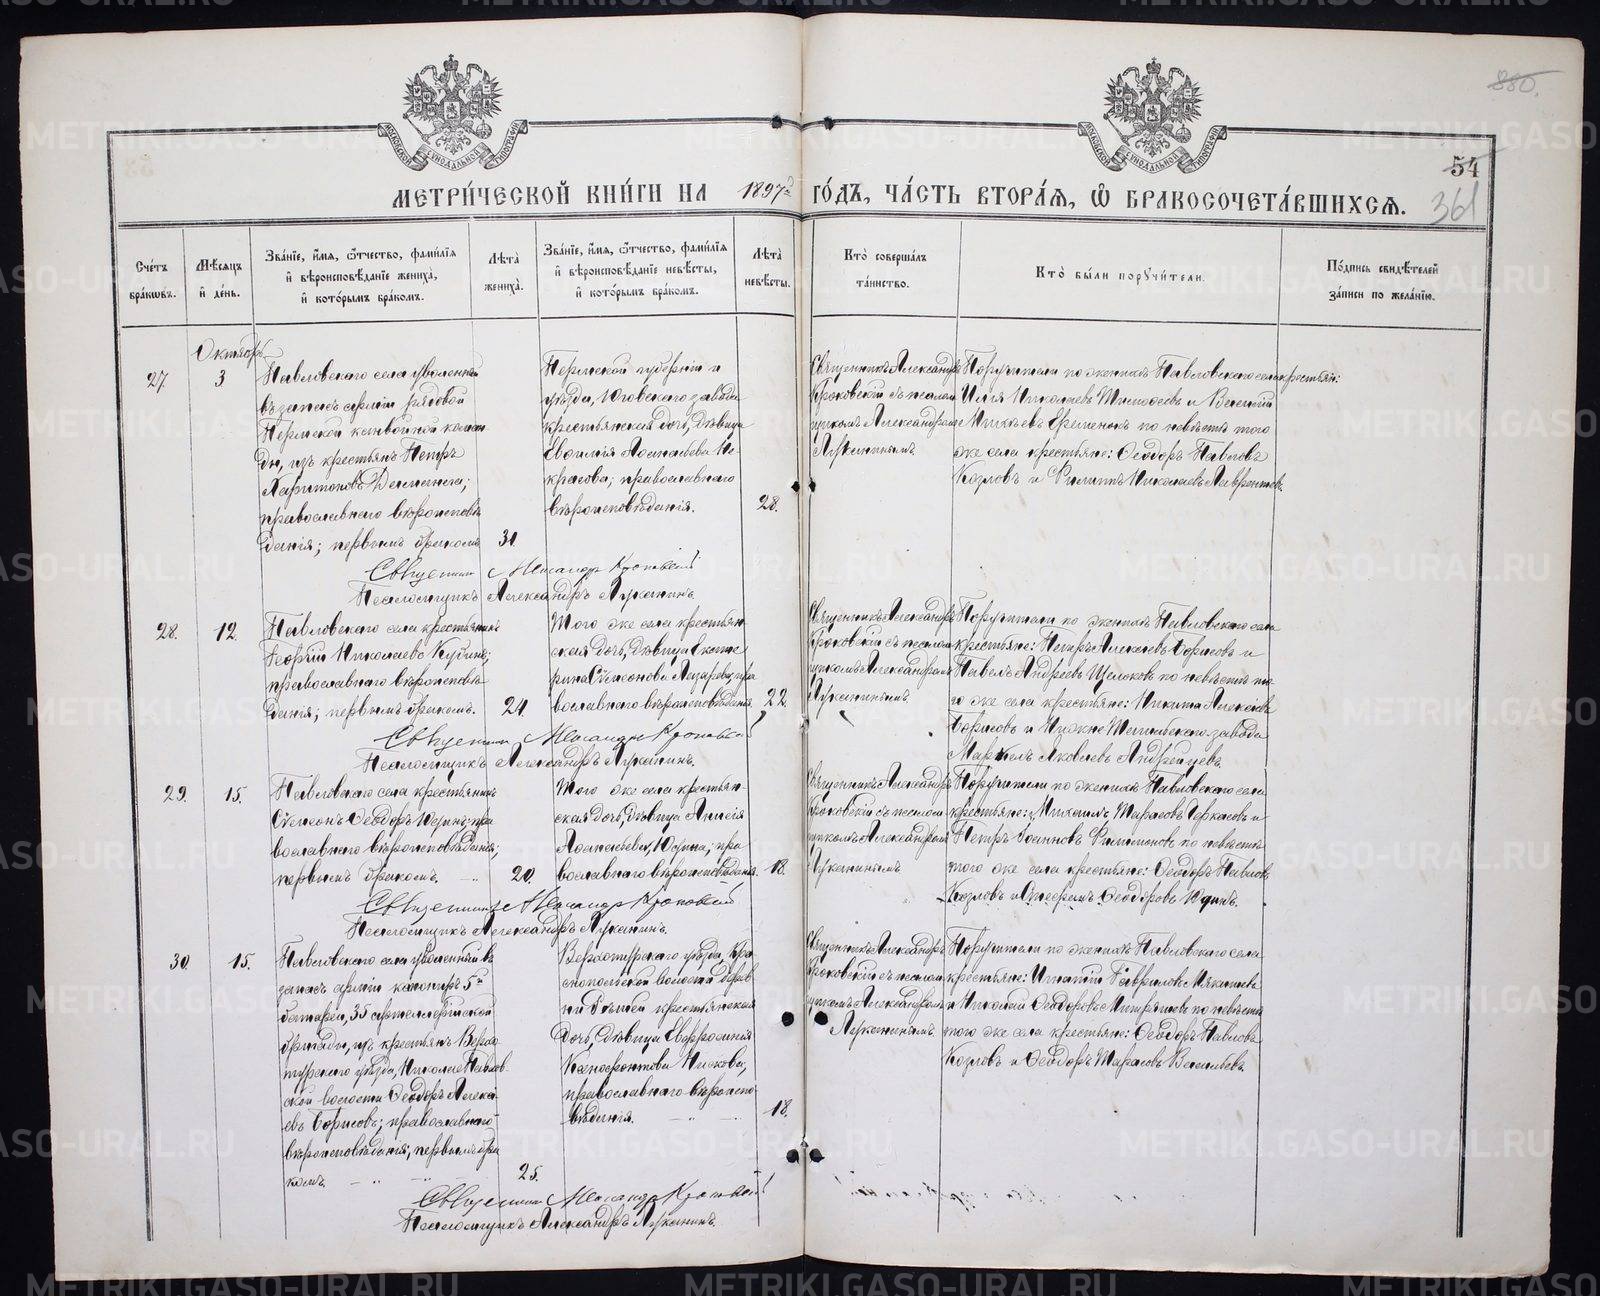 880.
54
361
МЕТРИ́ЧЕСКОЙ КНИ́ГИ НА 1897 ГО́ДЪ, ЧА́СТЬ ВТОРА́Я, Ѡ БРАКОСОЧЕТА́ВШИХСЯ.
Сче́тъ бра́ковъ.
Мѣ́сяцъ и де́нь.
Зва́нїе, и́мя, о́тчество, фами́лїя и вѣроисповѣ́данїе жениха̀, и кото́рымъ бра́комъ.
Лѣта̀ жениха̀.
Зва́нїе, и́мя, о́тчество, фами́лїя и вѣроисповѣ́данїе невѣ́сты, и кото́рымъ бра́комъ.
Лѣта̀ невѣ́сты.
Кто̀ соверша́лъ та́инство.
Кто̀ бы́ли поручи́тели.
По́дпись свидѣ́телей за́писи по жела́нїю.
Октябрь
27.
3
Павловскаго села уволенный
въ запасъ арміи рядовой
Пермской конвойной коман
ды, изъ крестьянъ Петръ
Харитоновъ
православнаго вѣроисповѣ
данія; первымъ бракомъ
31.
Пермской губерніи и
уѣзда, Юговскаго завода
крестьянская дочь, дѣвица
Евдокія Аѳанасьева Не
красова; православнаго
вѣроисповѣданія.
28.
Священникъ Александръ
Кроковскій съ псалом
щикомъ Александромъ
Лукинымъ
Поручители по женихѣ Павловскаго села крестьян:
Илія Николаевъ и Василій
по невѣстѣ того
же села крестьяне: Ѳеодоръ Павловъ
Козловъ и Филиппъ Николаевъ Лаврентьевъ
Священникъ Александръ Кроковскій
Псаломщикъ Александръ Лукинъ.
28.
12.
Павловскаго села крестьянинъ
Георгій Николаевъ
православнаго вѣроисповѣ
данія; первымъ бракомъ.
24.
Того же села крестьян
ская дочь, дѣвица Екате
рина Сѵмеонова Лазарева, пра
вославнаго вѣроисповѣданія
22.
Священникъ Александръ
Кроковскій съ псалом
щикомъ Александромъ
Лукинымъ
Поручители по женихѣ Павловскаго села
крестьяне: Петръ Алексѣевъ Борисовъ и
Павелъ Андреевъ Щелоковъ по невѣстѣ то
го же села крестьяне: Никита Алексѣевъ
Борисовъ и Нижне завода
Маркелъ Яковлевъ Андрейцевъ.
Священникъ Александръ Кроковскій
Псаломщикъ Александръ Лукинъ.
29.
15.
Павловскаго села крестьянинъ
Сѵмеонъ Ѳеодоръ Юдинъ; пра
вославнаго вѣроисповѣданія;
первымъ бракомъ.
20.
Того же села крестьян-
ская дочь, дѣвица Анисія
Аѳанасьева Юдина; пра
вославнаго вѣроисповѣданія.
18.
Священникъ Александръ
Кроковскій съ псалом
щикомъ Александромъ
Лукинымъ
Поручители по женихѣ Павловскаго села
крестьяне: Михаилъ Тарасовъ Черкасовъ и
Петръ Іоанновъ Филимоновъ по невѣстѣ
того же села крестьяне: Ѳеодоръ Павловъ
Козловъ и Ѳеодоровъ Юдинъ.
Священникъ Александръ Кроковскій
Псаломщикъ Александръ Лукинъ.
30.
15.
Павловскаго села уволенный въ
запасъ арміи канониръ 5й
батареи, 35 артиллерійской
бригады, изъ крестьянъ Верхо
турскаго уѣзда, Николае-Павлов
ской волости Ѳеодоръ Алексѣ
евъ Борисовъ; православнаго
вѣроисповѣданія; первымъ бра
комъ
25.
Верхотурскаго уѣзда, Кра
снопольской волости дерев
ни крестьянская
дочь, дѣвица Евфросинія
Ксенофонтова Пискова;
православнаго вѣроиспо
вѣданія.
18.
Священникъ Александръ
Кроковскій съ псалом
щикомъ Александромъ
Лукинымъ
Поручители по женихѣ Павловскаго села
крестьяне: Игнатій Гавриловъ Мякишевъ
и Николай Ѳеодоровъ по невѣстѣ
того же села крестьяне: Ѳеодоръ Павловъ
Козловъ и Ѳеодоръ Тарасовъ Васильевъ.
Священникъ Александръ Кроковскій
Псаломщикъ Александръ Лукинъ.
METRIKI.GASO-URAL.RU